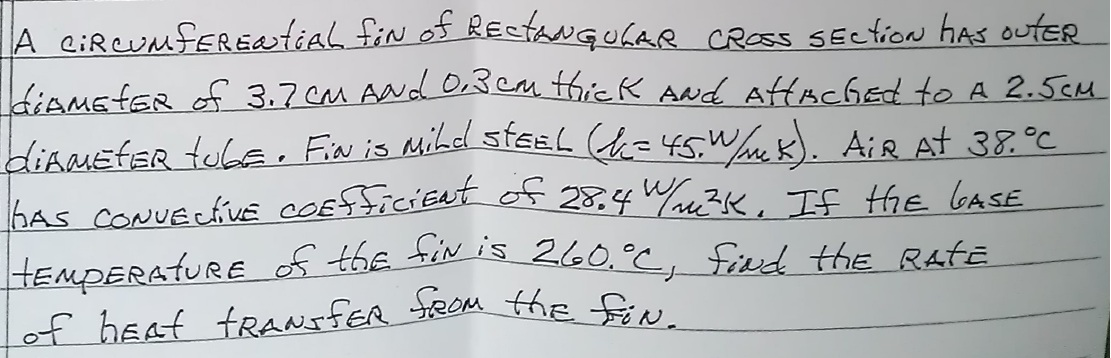 A CIRCUMFERENTIAL FIN OF RECTANGULAR CROSS SECTION HAS OUTER
DIAMETER OF 3.7 CM AND 0.3 CM THICK AND ATTACHED TO A 2.5 CM
DIAMETER TUBE. FIN IS MILD STEEL (k = 45. W/mK). AIR AT 38. °C
HAS CONVECTIVE COEFFICIENT OF 28.4 W/m²K. IF THE BASE
TEMPERATURE OF THE FIN IS 260. °C, FIND THE RATE
OF HEAT TRANSFER FROM THE FIN.